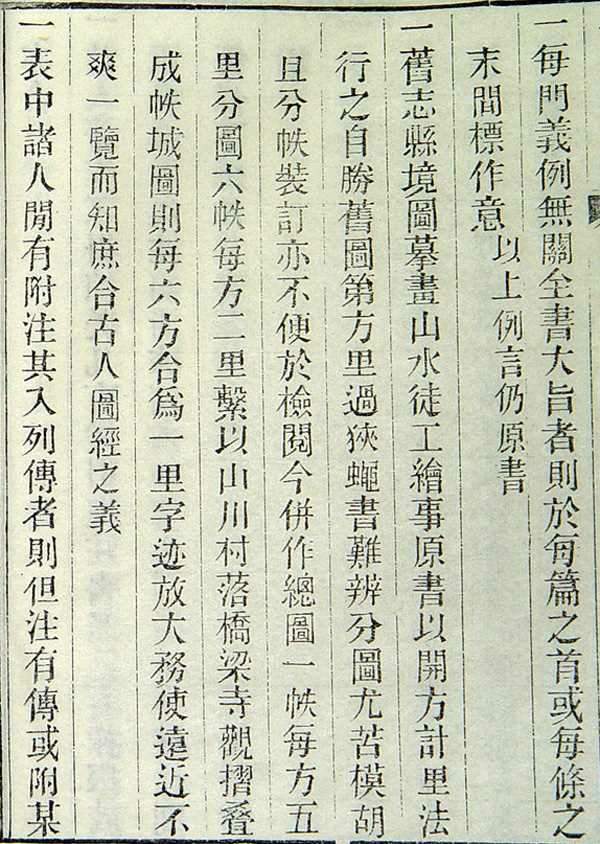 一每門義例無關全書大旨者則於每篇之首或每條之
末間標作意以上例言仍原書
一舊志縣境圖摹畫山水徒工繪事原書以開方計里法
行之自勝舊圖第方里過狹蠅書難辨分圖尤苦模胡
且分帙裝訂亦不便於檢閱今併作總圖一帙每方五
里分圖六帙每方二里繫以山川村落橋梁寺觀摺疊
成帙城圖則每六方合爲一里字迹放大務使遠近不
爽一覽而知庶合古人圖經之義
一表中諸人閒有附注其入列傳者則但注有傳或附某